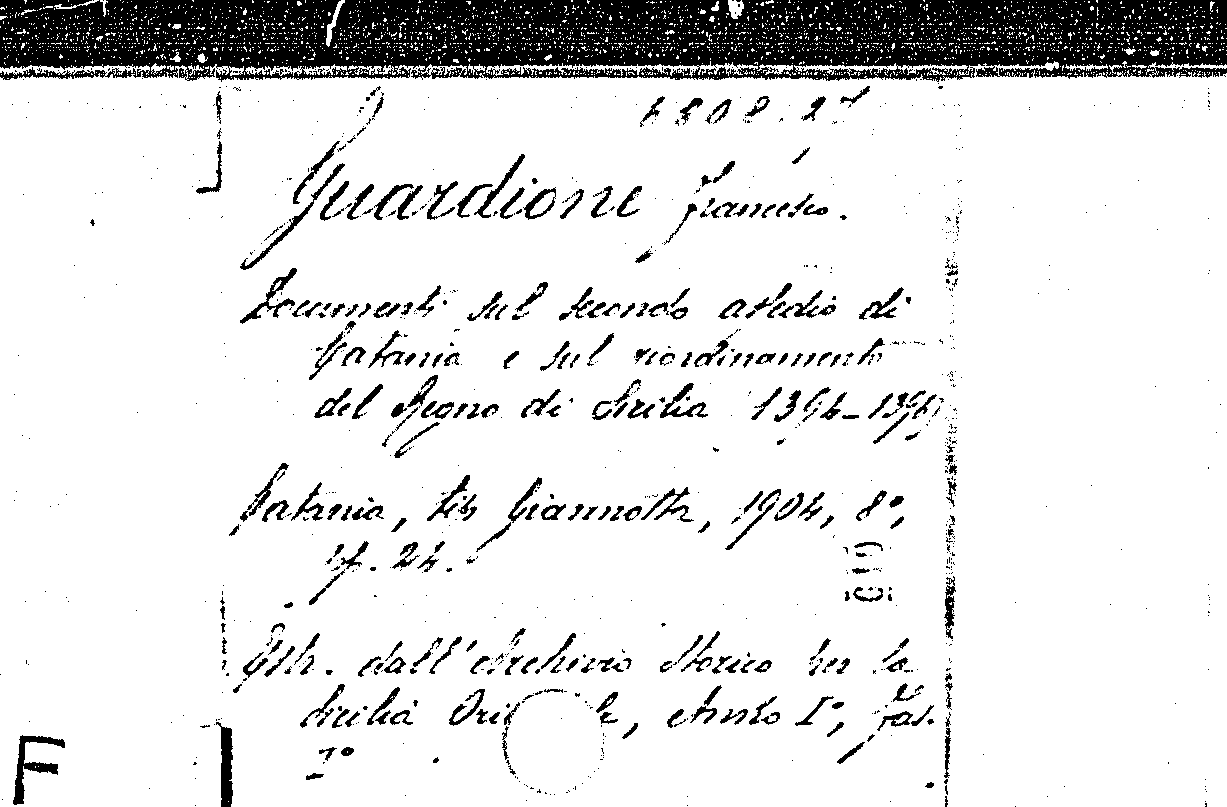 Guardione Francesco.
Documenti sul secondo assedio di
Catania e sul riordinamento
del Regno di Sicilia 1394-1396
Catania, tip Giannotta, 1904, 8°,
pp. 24.
Estr. dall'Archivio Storico per la
Sicilia, Anno I°, Fas.
I°
F